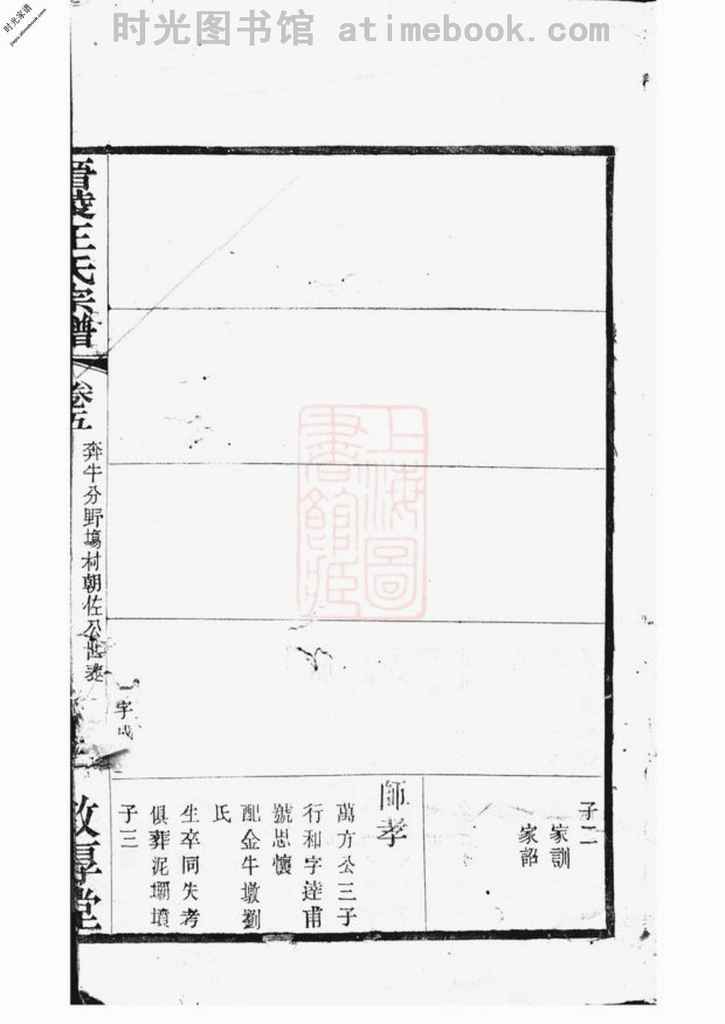 时光图书馆 atimebook.com
时光家谱
上海圖
書館藏
子二
家訓
家詔
師孝
萬方公三子
行和字達甫
號思懷
配金牛墩劉
氏
生卒同失考
俱葬泥壩墳
子三
晋陵王氏宗譜
卷五
奔牛分野塲村朝佐公世表
敦厚堂